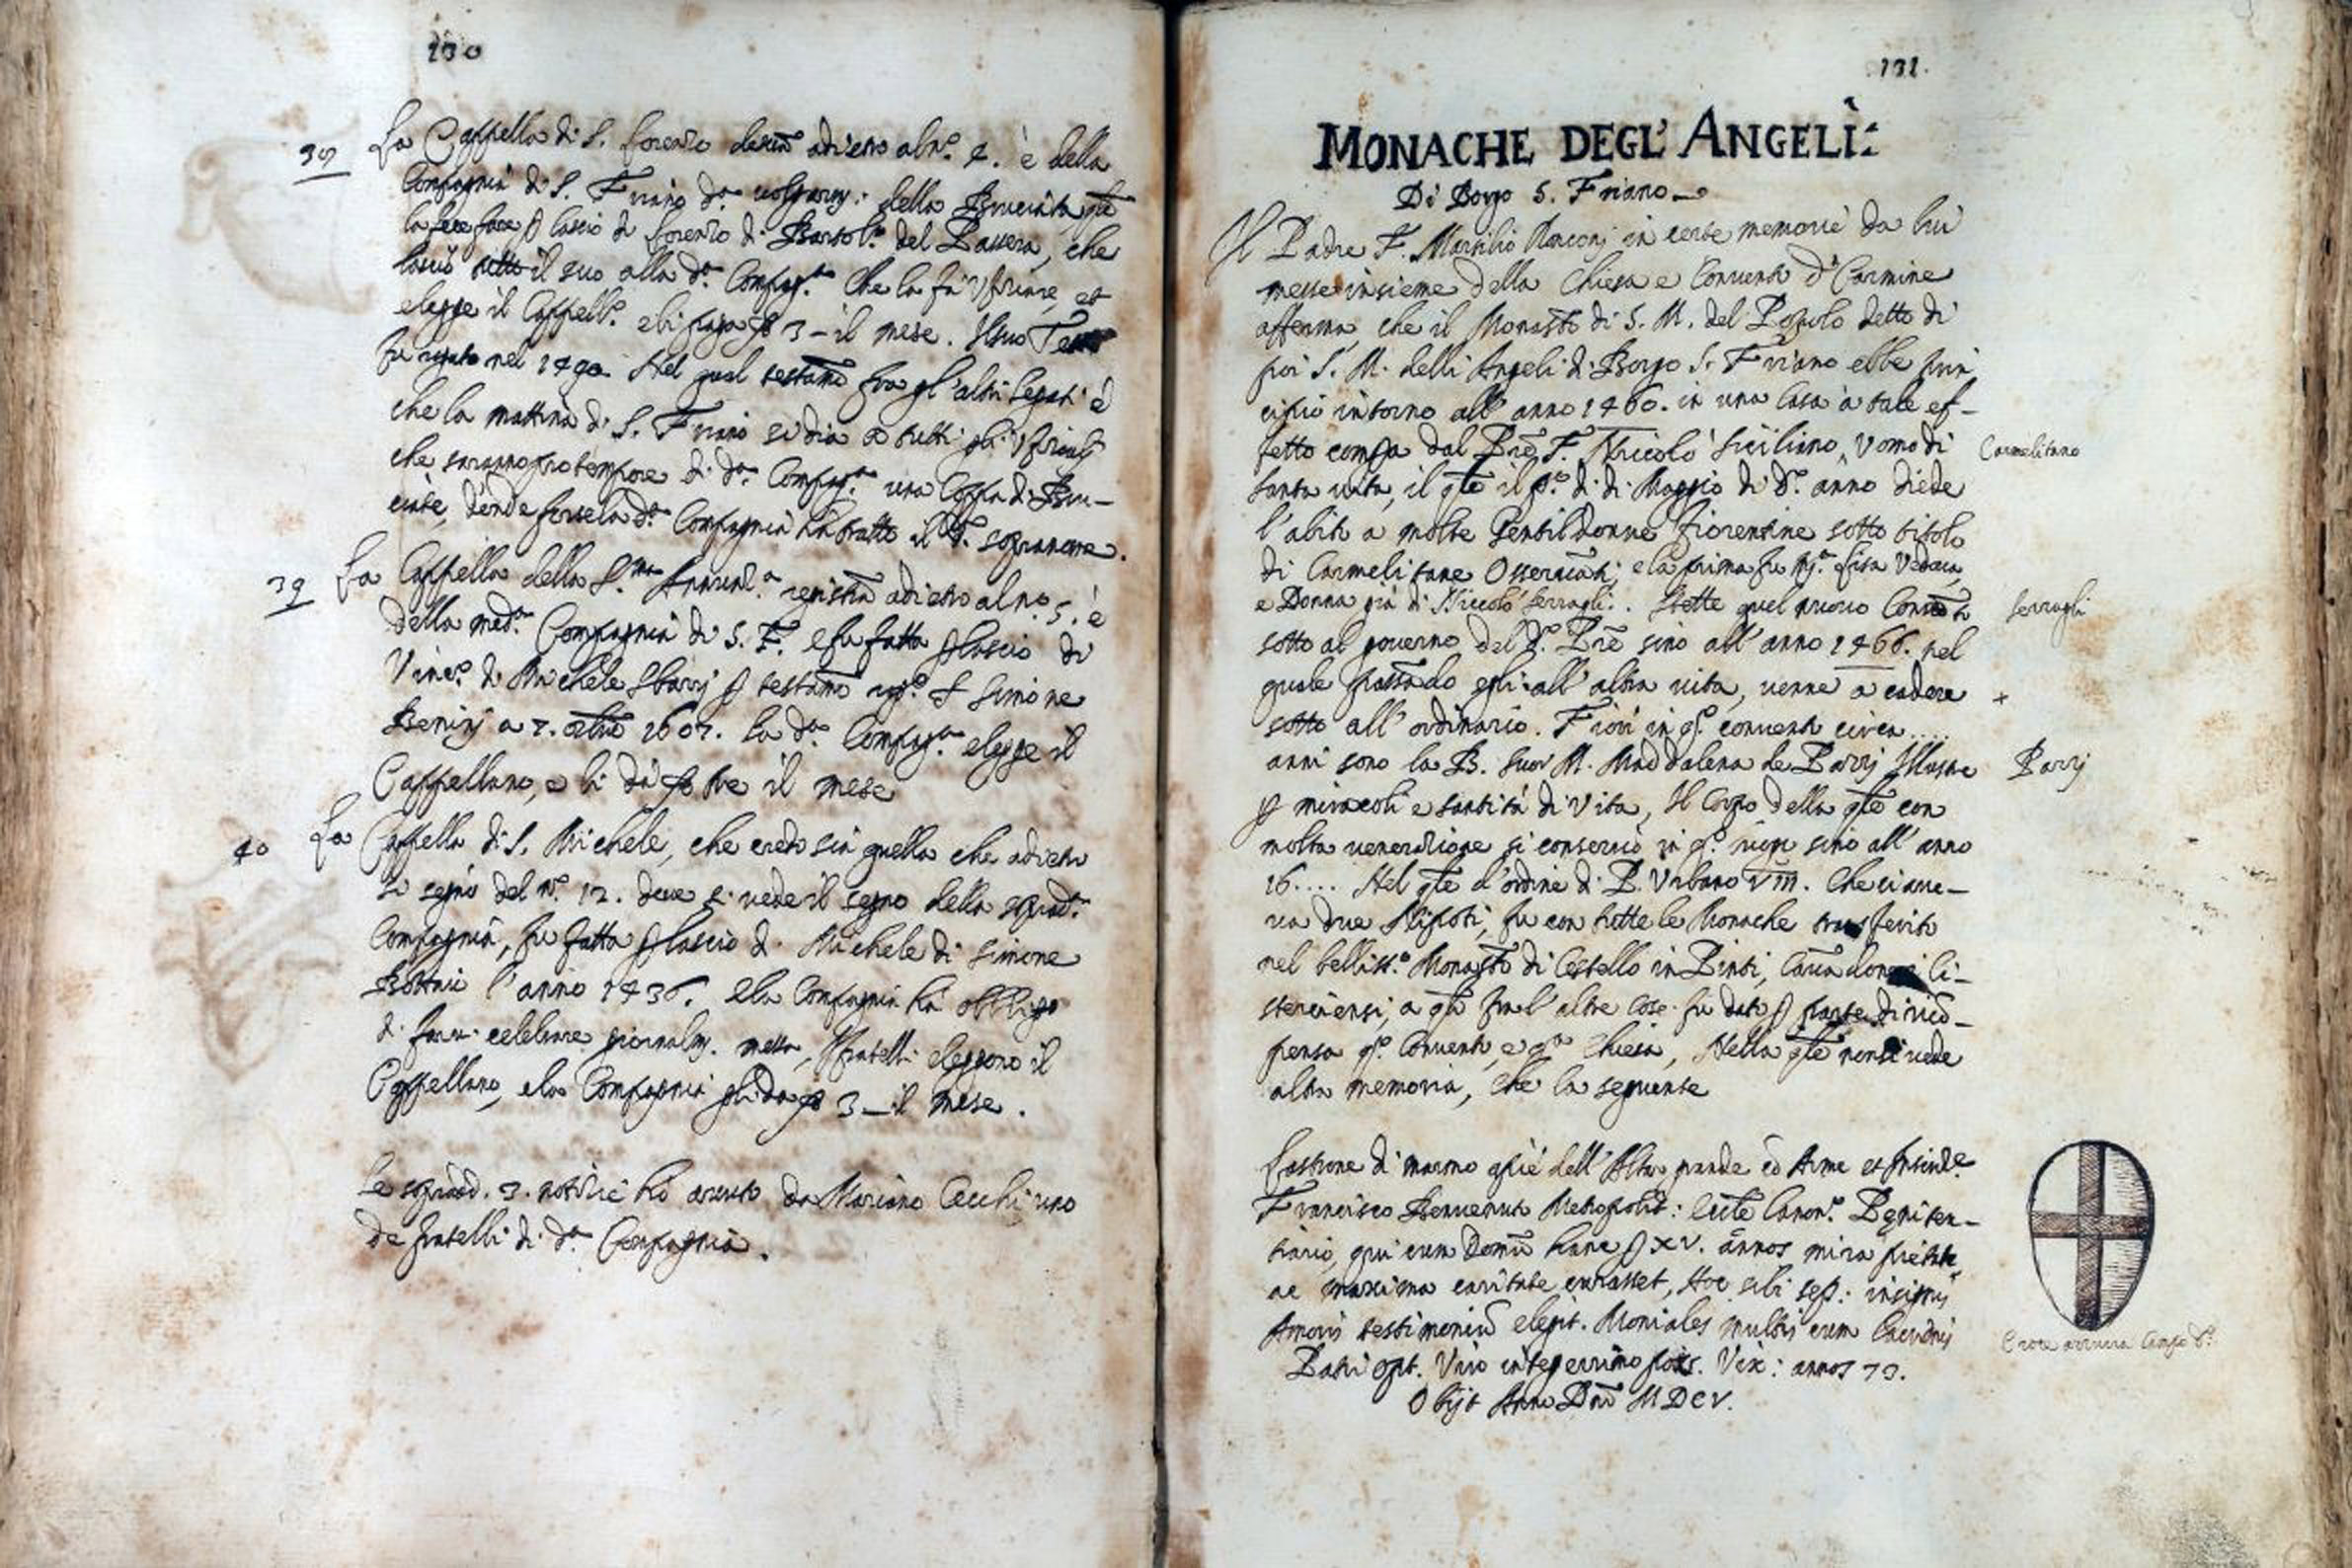 130
38 La Cappella di S. Lorenzo adietro al n.º 4. è della
Compagnia di S. Friano d.ª della Bruciata, q̃le
la fece fare lascio di Lorenzo di Bartol.º del Passera, che
lasciò tutto il suo alla d.ª Comp.ª che la fà ufiziare, et
elegge il Capell.º e li paga 3 – il mese. Il suo
fu rogato nel 1490. Nel qual testam̃ fra gl'altri legati è
che la mattina di S. Friano si dia a tutti gli
che saranno pro tempore di d.ª Compag.ª una Coppa di Bru-
ciate, donde forse la d.ª Compagnia hà tratto il sopranome.
39 La Cappella della S.ma Annunz.ª adietro al no. 5. è
della med.ª Compagnia di S. F. e fu fatta lascio di
Vinc.º di Michele Sbarrj testam̃ S. Simone
a 7. 1607. La d.ª Compag.ª elegge il
Cappellano, e li dà tre il mese
40 La Cappella di S. Michele, che credo sia quella che adietro
segno del n.º 12. dove si vede il segno della
Compagnia, fu fatta lascio di Michele di Simone
l'anno 1436. e la Compagnia hà obbligo
di fare celebrare messa, I fratelli eleggono il
Cappellano, e la Compagnia gli dà 3 – il mese.
Le 3. notizie hò avuto da Mariano Cecchi uno
de fratelli di d.ª Compagnia.
131.
MONACHE DEGL' ANGELÌ:
Di Borgo S. Friano
Il Padre F. Marsilio in certe memorie da lui
messe insieme della Chiesa e Convento d' Carmine
afferma, che il Monast̃o di S. M. del Popolo detto di
poi S. M. delli Angeli di Borgo S. Friano ebbe prin
cipio intorno all' anno 1460. in una Casa à tale ef-
fetto compra dal Pr̃e F. Niccolò Siciliano, Uomo di
Carmelitano
santa vita, il q̃le il p.º dì di Maggio di d.º anno diede
l'abito a molte Gentildonne fiorentine sotto titolo
di Carmelitane e la prima fu Lisa Vedova,
e Donna già di Niccolò Serragli. Stette quel nuovo
Serragli
sotto al governo del d.º Pr̃e sino all' anno 1466. nel
quale passãdo egli all' altra vita, venne a cadere
+
sotto all' ordinario. Fiorì in q.º convento circa ....
anni sono la B. Suor M. Maddalena de Pazzj Illustre
Pazzj
miracoli e santità di Vita, Il Corpo della q̃le con
molta venerazione si conservò in q.º sino all' anno
16.... Nel q̃le d'ordine di P. Urbano VIII. che ci ave-
va due Nipoti, fu con tutte le Monache trasferito
nel belliss.º Monast̃o di Cestello in Pinti, li Ci-
sterciensi, a q̃li fra l' altre cose fu dato parte di ricõ-
pensa q.º Convento, e q.ª Chiesa, Nella q̃le non si vede
altra memoria, che la seguente
Lastrone di marmo a piè dell' Altar grande cõ Arme et
Francisco Benvenuto Metropolit: Canon.º Peniten-
tiario, qui cum Domũ hanc XV. ãnnos mira pietate
ac maxima caritate curasset, Hoc sibi sep: insigne
Amoris testimoniũ elegit. Moniales multis cum lacrimis
Patri opt. Viro integerrimo pos. Vix: annos 73.
Obijt Anno Dñi MDCV.
Croce Campo d.º